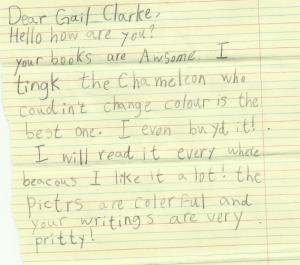 Dear Gail Clarke,
Hello how are you?
your books are Awsome. I
tingk the Chameleon who
coudin't change colour is the
best one. I even buyd it!.
I will read it every where
beacous I like it a lot! the
Pictrs are colerful and
your writings are very
pritty!